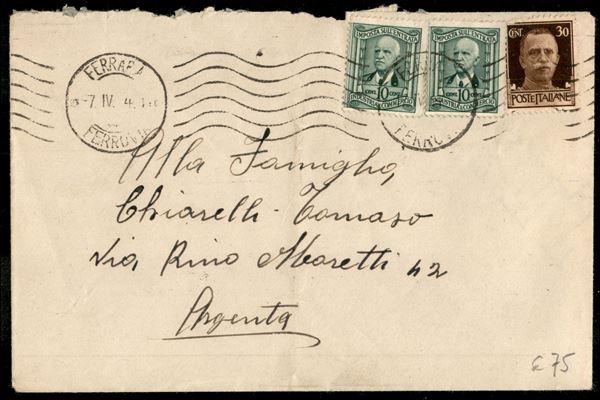 IMPOSTA SULL'ENTRATA
CENT. 10 CENT.
INDUSTRIA E COMMERCIO
IMPOSTA SULL'ENTRATA
CENT. 10 CENT.
INDUSTRIA E COMMERCIO
CENT. 30
POSTE ITALIANE
FERRARA
-7 IV. 4
FERROVIA
FERROV
Alla Famiglia
Chiarelli - Tomaso
Via Rino Moretti 42
Argenta
675